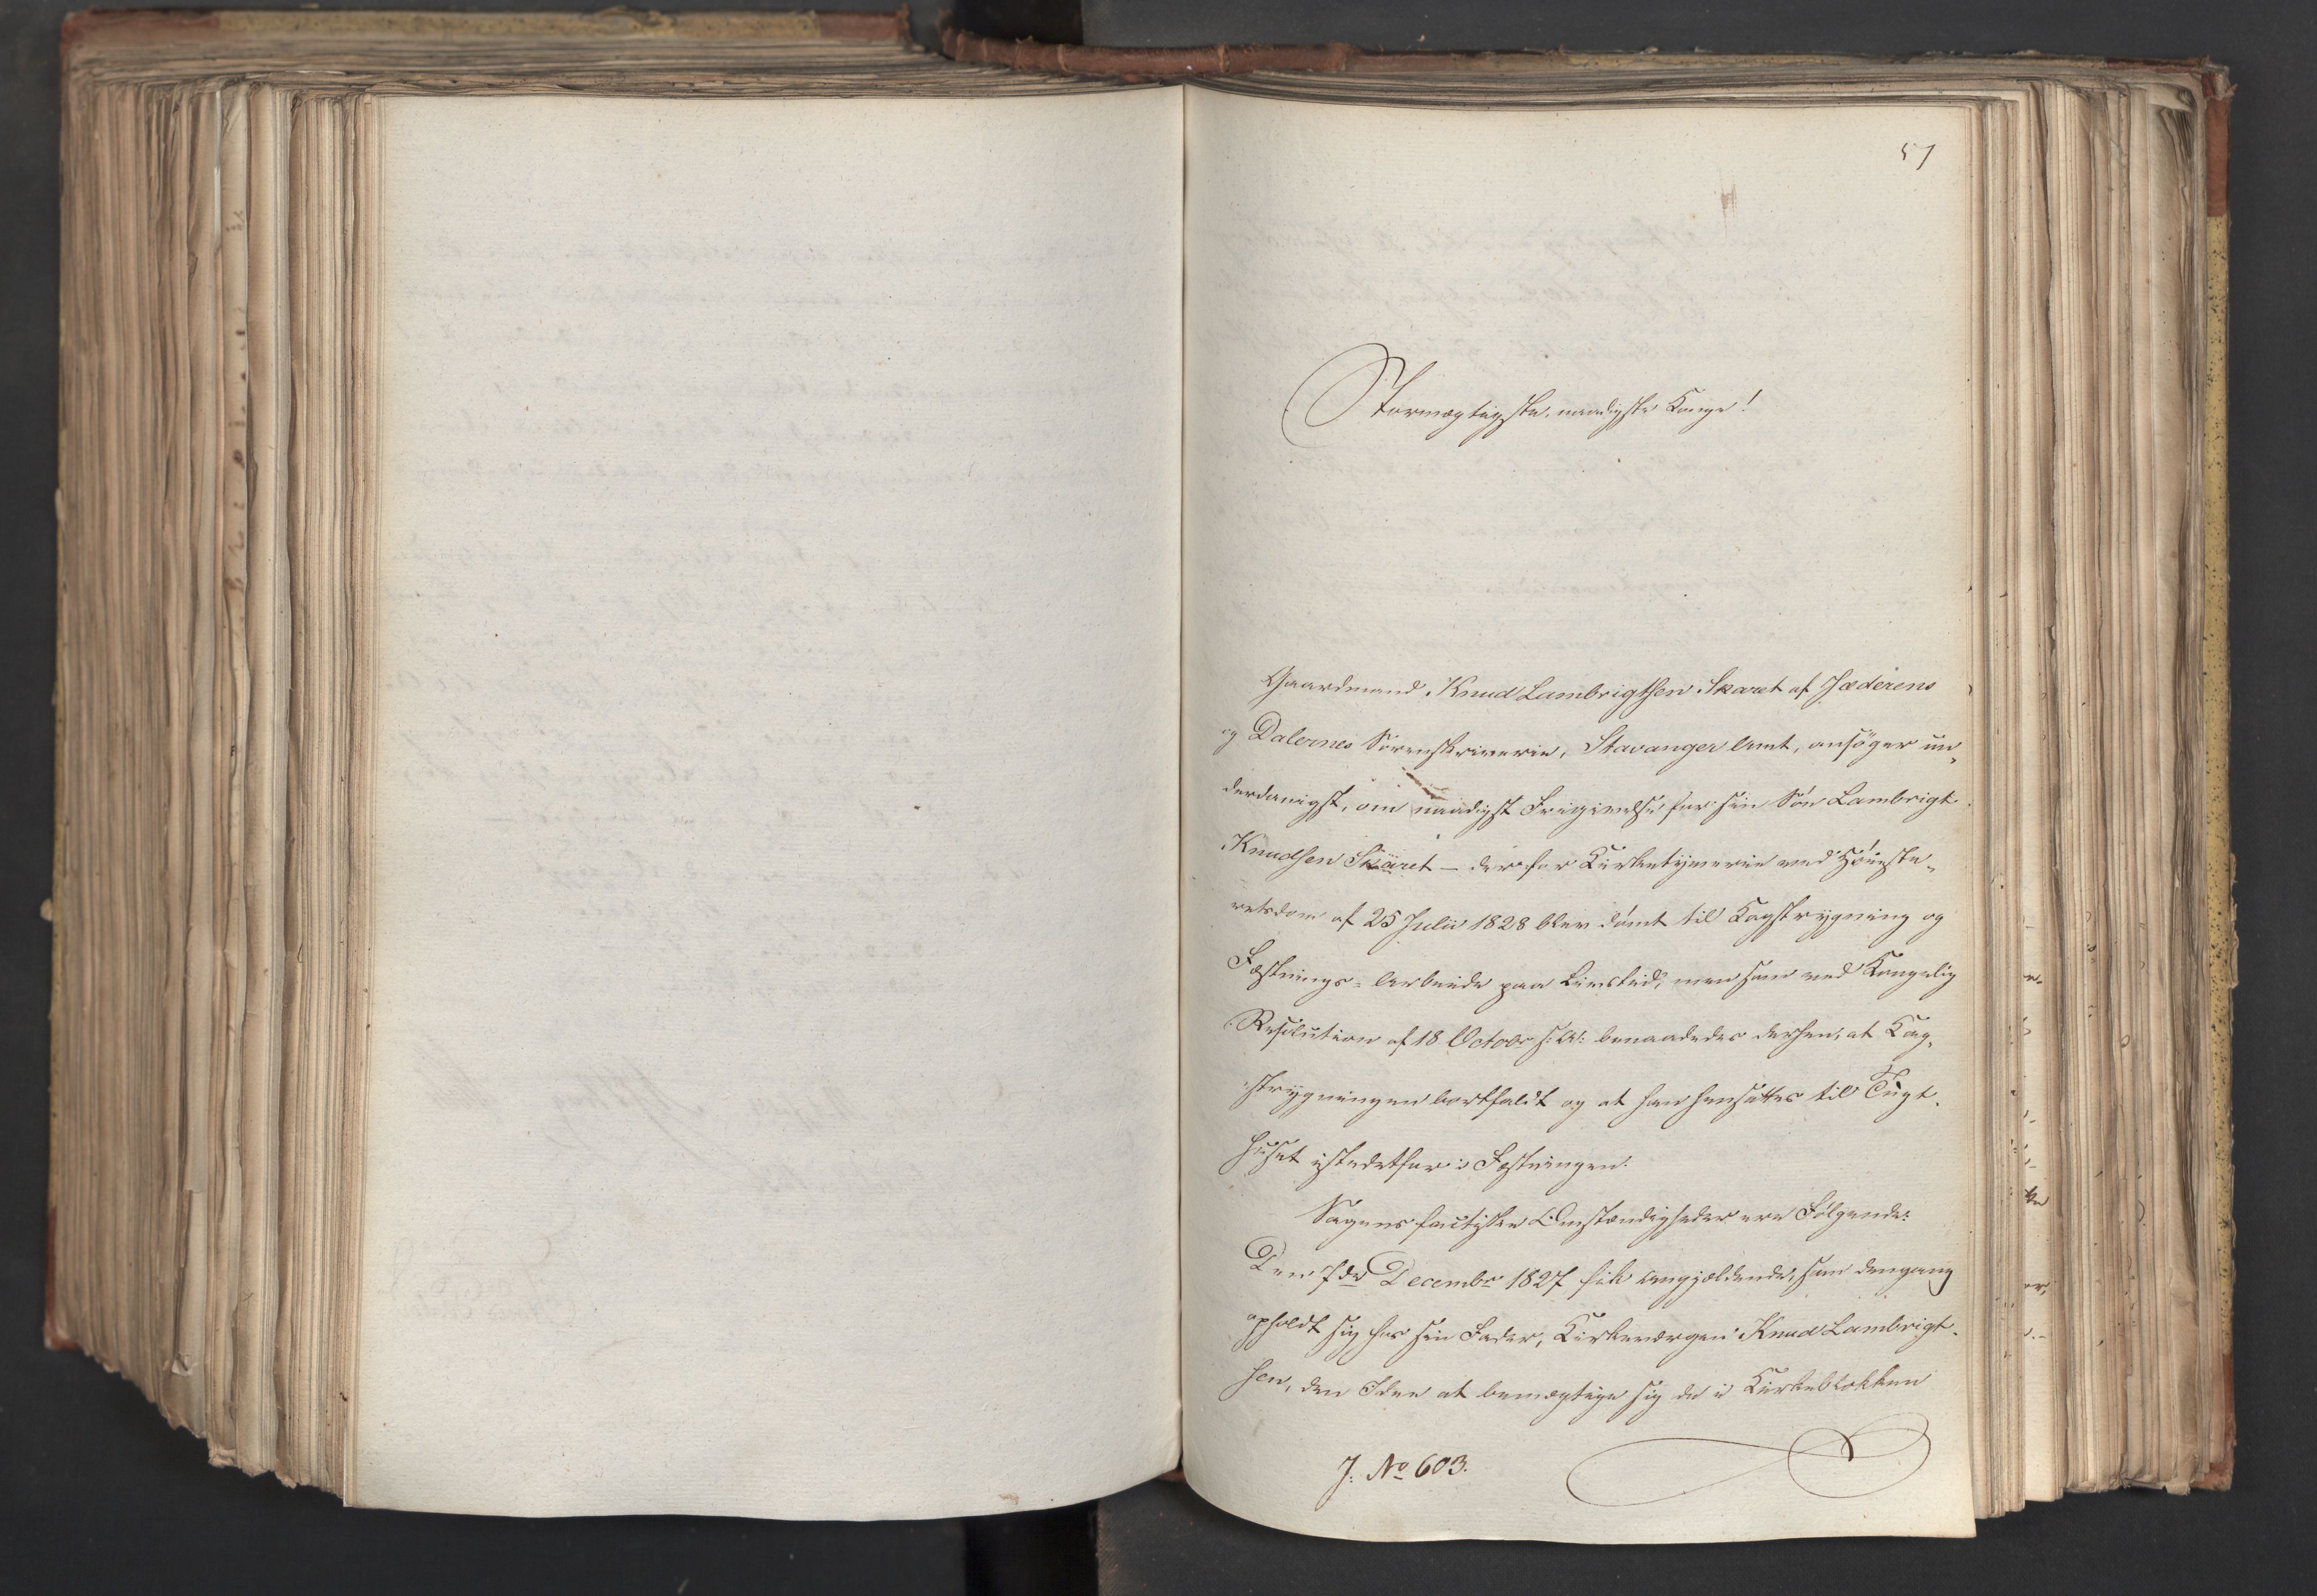 57
Stormægtigste, naadigste Konge!
Gaardmand Knud Lambrigtsen Skaret af Jæderens
og Dalernes Sörenskriverie, Stavanger Amt, ansöger un-
derdanigst, om naadigst Frigivelse for sin Sön Lambrigt
Knudsen Skaret – der for Kirketyverie ved Höieste-
retsdom af 25 Julii 1828 blev dömt til Kagstrygning og
Fæstnings-Arbeide paa Livstid, men som ved Kongelig
Resolution af 18 Octobr s: A: benaadedes derhen, at Kag-
strygningen bortfaldt og at han hensattes til Tugt-
huset istedetfor i Fæstningen.
Sagens factiske Omstændigheder ere Fölgende:
Den 7de Decembr 1827 fik Angjældende, som dengang
opholdt sig hos sin Fader, Kirkeværgen Knud Lambrigt-
sen, den Idee at bemægtige sig de i Kirkeblokken
J: No 603.